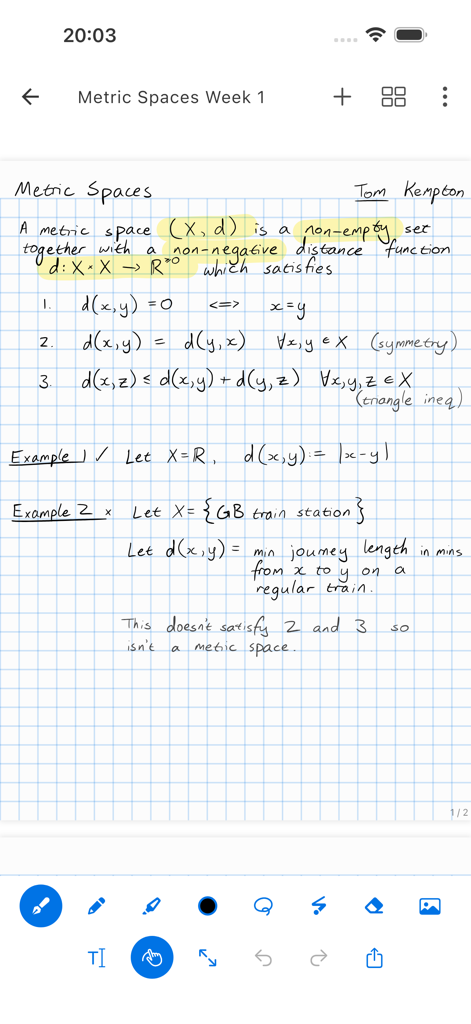 20:03
Metric Spaces Week 1
Metric Spaces Tom Kempton
A metric space (X, d) is a non-empty set
together with a non-negative distance function
d: X × X → R≥0 which satisfies
1. d(x,y) = 0 <=> x = y
2. d(x,y) = d(y,x) ∀x,y ∈ X (symmetry)
3. d(x,z) ≤ d(x,y) + d(y,z) ∀x,y,z ∈ X
(triangle ineq)
Example 1 ✓ Let X = ℝ, d(x,y) := |x-y|
Example 2 × Let X = {GB train station}
Let d(x,y) = min journey length in mins
from x to y on a
regular train.
This doesn't satisfy 2 and 3 so
isn't a metric space.
1/2
T